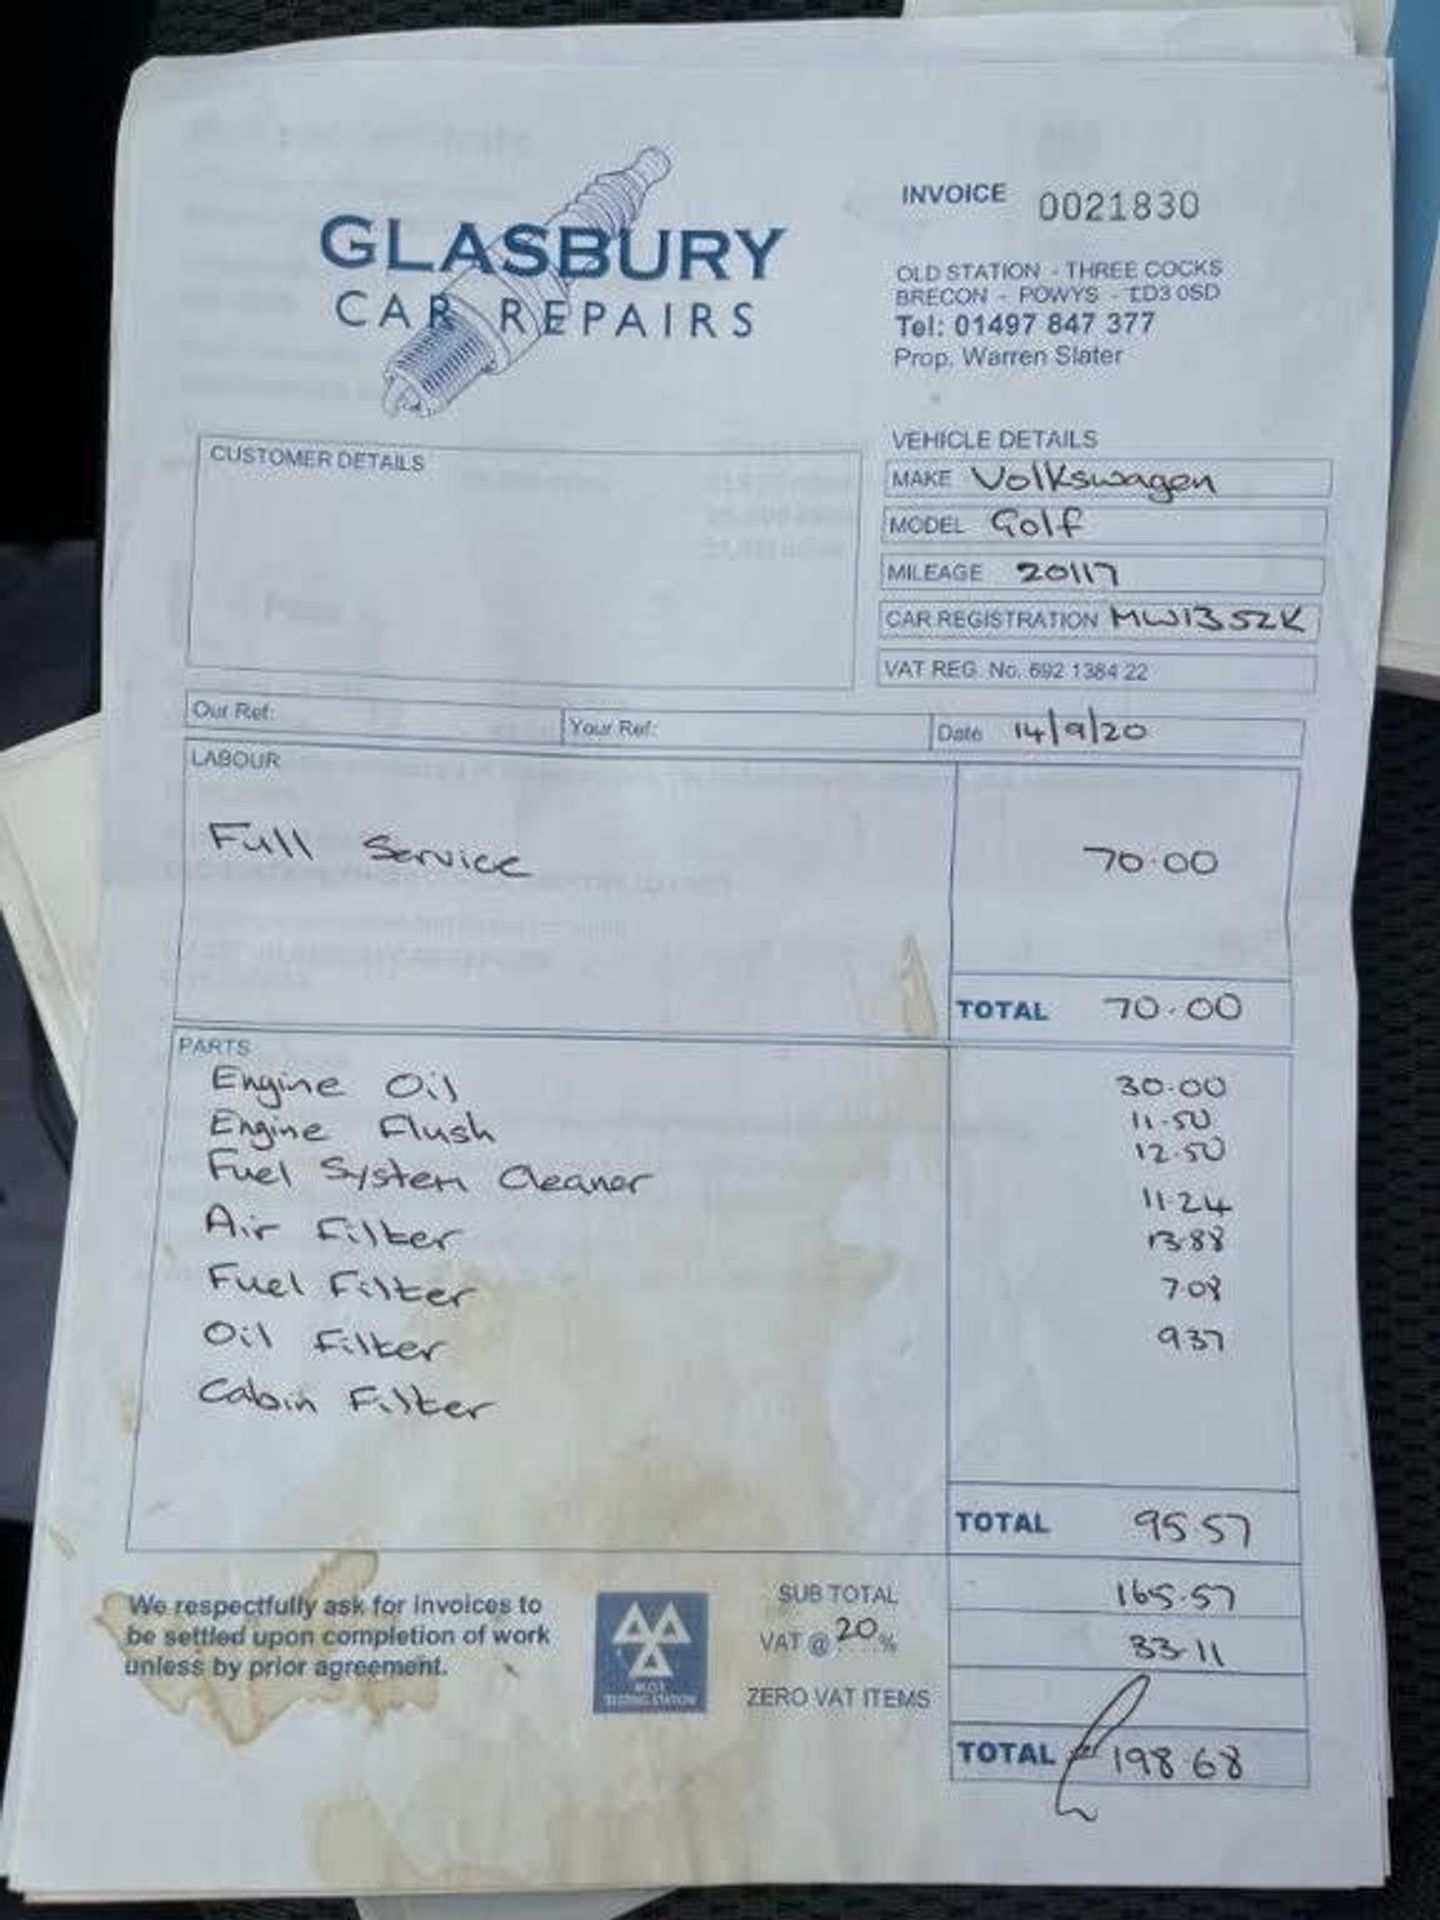 GLASBURY
CAR REPAIRS
INVOICE 0021830
OLD STATION - THREE COCKS
BRECON - POWYS - LD3 0SD
Tel: 01497 847 377
Prop. Warren Slater
CUSTOMER DETAILS
VEHICLE DETAILS
MAKE Volkswagen
MODEL Golf
MILEAGE 20117
CAR REGISTRATION MW13 SZK
VAT REG. No. 692 1384 22
Our Ref:
Your Ref:
Date 14/9/20
LABOUR
Full Service 70.00
TOTAL 70.00
PARTS
Engine Oil 30.00
Engine Flush 11.50
Fuel System Cleaner 12.50
Air Filter 11.24
Fuel Filter 13.88
Oil Filter 7.08
Cabin Filter 9.37
TOTAL 95.57
SUB TOTAL 165.57
VAT @ 20 % 33.11
ZERO VAT ITEMS
TOTAL 198.68
We respectfully ask for invoices to
be settled upon completion of work
unless by prior agreement.
TESTING STATION